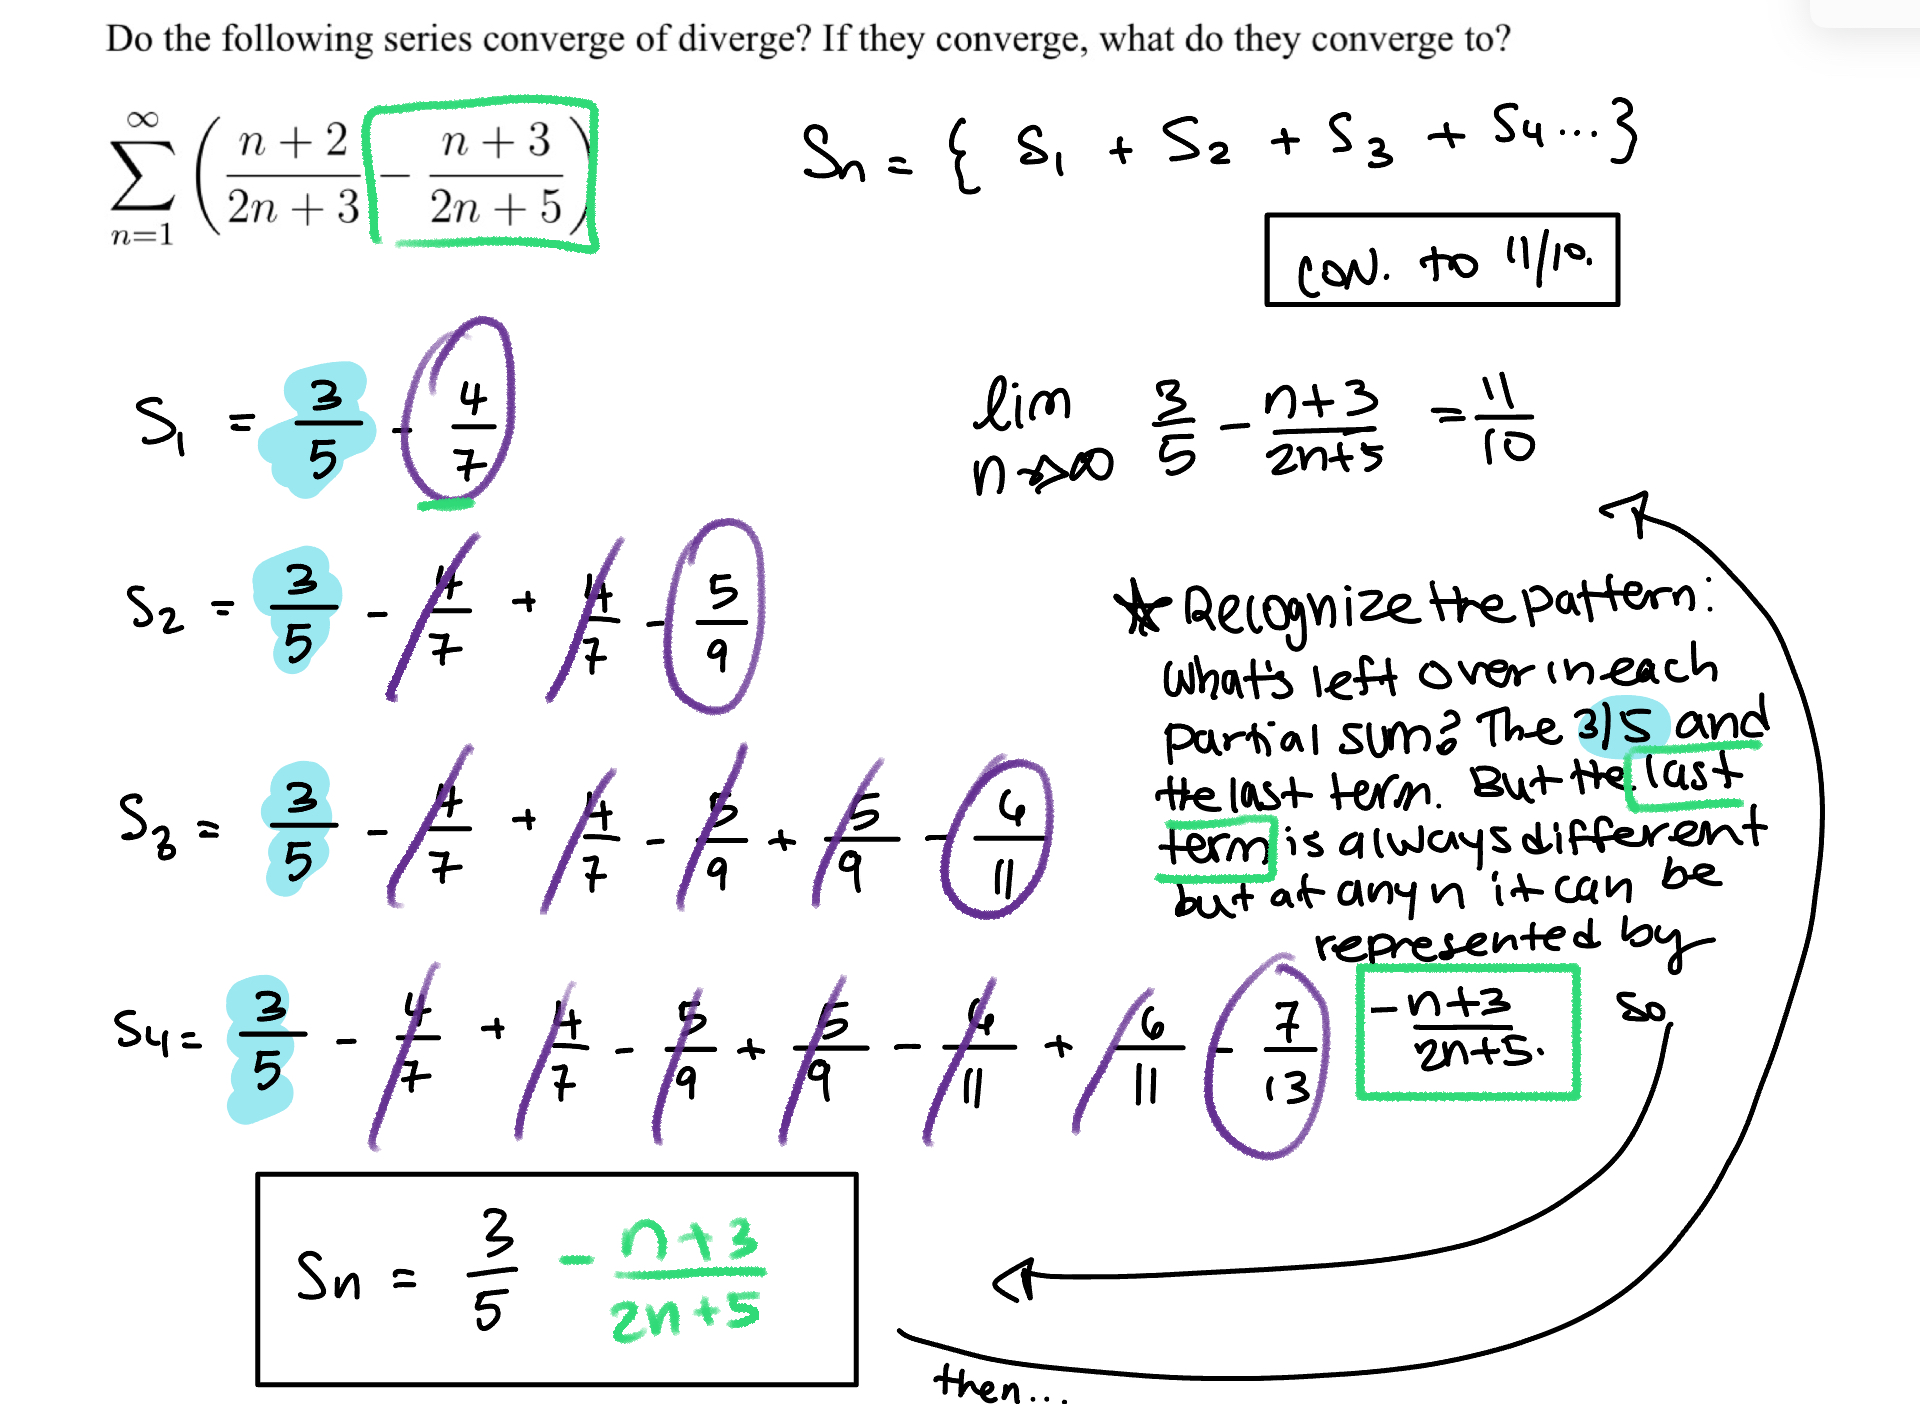 Do the following series converge of diverge? If they converge, what do they converge to?
∑_{n=1}^{∞} ( (n + 2)/(2n + 3) − (n + 3)/(2n + 5) )
Sn = { S1 + S2 + S3 + S4 ... }
con. to 11/10.
S1 = 3/5 - 4/7
lim n→∞ 3/5 - n+3/2n+5 = 11/10
S2 = 3/5 - 4/7 + 4/7 - 5/9
S3 = 3/5 - 4/7 + 4/7 - 5/9 + 5/9 - 6/11
S4 = 3/5 - 4/7 + 4/7 - 5/9 + 5/9 - 6/11 + 6/11 - 7/13
☆ Recognize the pattern:
what's left over in each
partial sum? The 3/5 and
the last term. But the last
term is always different
but at any n it can be
represented by
- n+3/2n+5. so
Sn = 3/5 - n+3/2n+5
then...